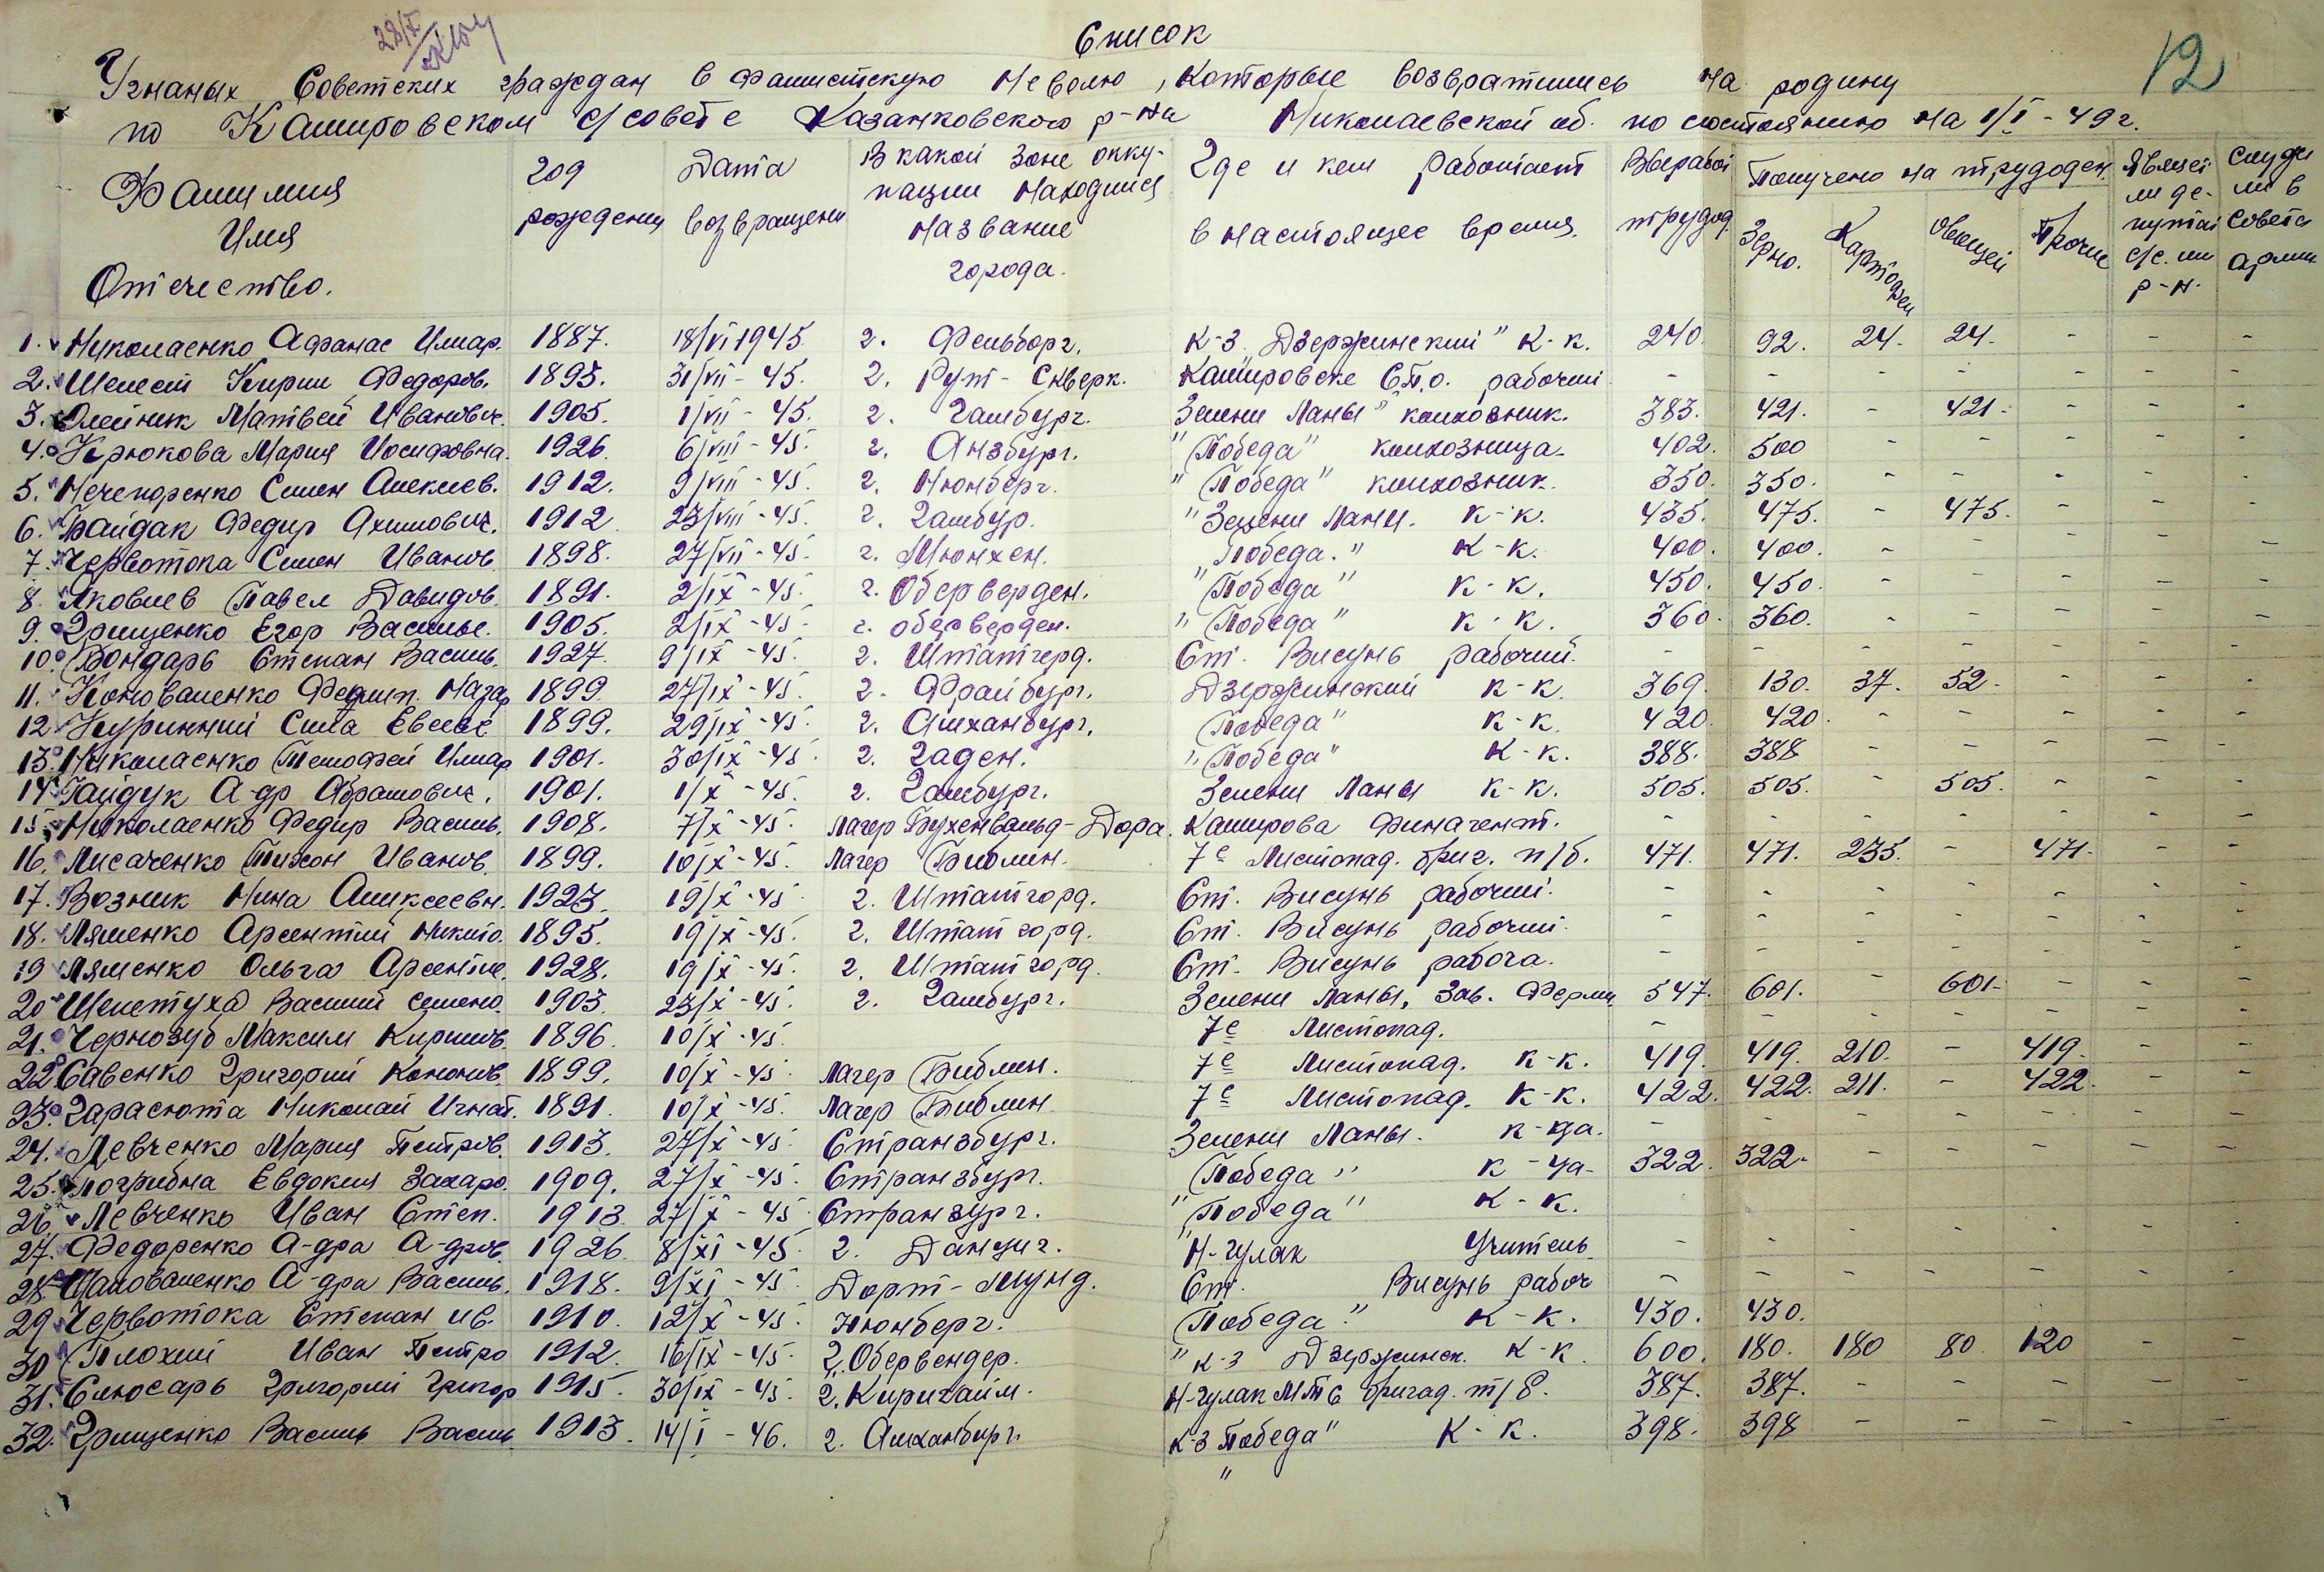 28/I
Список
12
Угнаных Советских граждан в фашистскую неволю, которые возвратились на родину
по Кашировском с/совете Казанковского р-на Николаевской об. по состоянию на 1/I-49 г.
Фамилия Имя Отечество. год рождения Дата возвращени В какой зоне окку-пации находился название города. Где и кем работает в настоящее время. Выработ трудод. Получено на трудоден Зерно. Картофел Овощей Прочие Являет ли де-путат с/с. ил р-н. Служи ли в Совета армии
1. Николаенко Афанас Илар. 1887. 18/VI 1945 г. Фельборг. К-з. Дзержинский" К-к. 240. 92. 24. 24. - - -
2. Шелест Кирил Федоров. 1893. 31/VII-45. г. Рут-Скверк. Кашировске С.П.о. рабочий - - - - - - -
3. Олейник Матвей Иванович. 1905. 1/VII-45. г. Гамбург. Зелени Ланы" колхозник. 383. 421. - 421. - - -
4. Крюкова Мария Иосифовна. 1926. 6/VIII-45. г. Анзбург. "Победа" колхозница. 402. 500 - - - - -
5. Нечепоренко Симен Алексеев. 1912. 9/VIII-45. г. Нюнберг. "Победа" колхозник. 350. 350. - - - - -
6. Байдак Федир Ахимович. 1912 23/VIII-45. г. Гамбур. "Зелени Ланы. К-к. 435. 475. - 475. - - -
7. Червотока Симен Иванов 1898. 27/VII-45. г. Мюнхен. "Победа." К-к. 400. 400. - - - - -
8. Яковлев Павел Давидов. 1891. 2/IX-45. г. Оберверден. "Победа" К-к. 450. 450. - - - - -
9. Грищенко Егор Василье. 1905. 2/IX-45. г. оберверден. "Победа" К-к. 360. 360. - - - - -
10. Бондарь Степан Василь. 1927. 9/IX-45. г. Штатгерд. Ст. Висунь рабочий. - - - - - - -
11. Коноваленко Филип. Назар 1899. 27/IX-45. г. Фрайбург. Дзержинский к-к. 369. 130. 37. 52. - - -
12. Куринний Сила Евсеве 1899. 29/IX-45. г. Ашханбург. Победа" К-к. 420. 420. - - - - -
13. Николаенко Темофей Илар 1901. 30/IX-45. г. Гаден. "Победа" К-к. 388. 388 - - - - -
14. Гайдук А-др Абрамович. 1901. 1/X-45. г. Гамбург. Зелени Ланы К-к. 505. 505. - 505. - - -
15. Николаенко Федир Василь. 1908. 7/X-45. Лагер Бухенвальд-Дора. Каширова Финагент. - - - - - - -
16. Лисаченко Тихон Иванов. 1899. 10/X-45. Лагер Библин. 7е Листопад. бриг. п/б. 471. 471. 235. - 471. - -
17. Возник Нина Аликсеевн. 1923. 19/X-45. г. Штатгорд. Ст. Висунь рабочий. - - - - - - -
18. Ляшенко Арсентий Никито. 1895. 19/X-45. г. Штатгорд. Ст. Висунь рабочий. - - - - - - -
19 Ляшенко Ольга Арсентие. 1928. 19/X-45. г. Штатгорд. Ст. Висунь рабоча. - - - - - - -
20 Шелестуха Василий Семено. 1903. 23/X-45. г. Гамбург. Зелени Ланы, Зав. Ферми 547. 601. - 601. - - -
21. Чернозуб Максим Кирилов. 1896. 10/X-45. 7е Листопад. - - - - - - -
22 Савенко Григорий Кононов. 1899. 10/X-45. Лагер Библин. 7е Листопад. К-к. 419. 419. 210. - 419. - -
23. Гарасюта Николай Игнат. 1891. 10/X-45. Лагер Библин 7е Листопад. К-к. 422. 422. 211. - 422. - -
24. Левченко Мария Петров. 1913. 27/X-45. Странзбург. Зелени Ланы. к-ца. - - - - - - -
25. Погрибна Евдокия Захаро. 1909. 27/X-45. Странзбург. Победа" к-ца- 322. 322. - - - - -
26. Левченко Иван Степ. 1913. 27/X-45 Странзург. "Победа" К-к.
27. Федоренко А-дра А-дров. 1926. 8/XI-45. г. Данциг. Н-Гулак Учитель - - - - - - -
28. Шаповаленко А-дра Василь. 1918. 9/XI-45. Дорт-мунд. Ст. Висунь рабоч - - - - - - -
29 Червотока Степан Ив. 1910. 12/X-45. Нюнберг. Победа." К-к. 430. 430.
30 Плохий Иван Петро 1912. 16/IX-45. г. Обервендер. "к-з Дзержинск. К-к 600. 180. 180 80. 120 - -
31. Слюсарь Григорий Григор 1915. 30/IX-45. г. Киригайм. Н-гулак МТС бригад. т/б. 387. 387. - - - - -
32. Грищенко Василь Василь. 1913. 14/I-46. г. Ашханбург. К-з "Победа" К-к. 398. 398 - - - - -